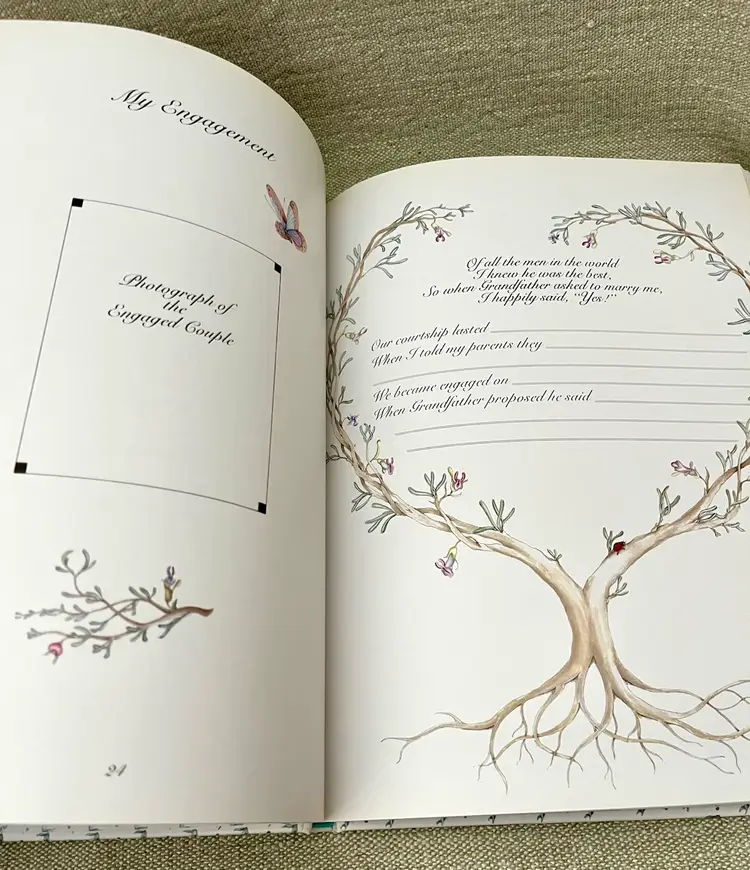 My Engagement
Photograph of
the
Engaged Couple
24
Of all the men in the world
I knew he was the best,
So when Grandfather asked to marry me,
I happily said, "Yes!"
Our courtship lasted
When I told my parents they
We became engaged on
When Grandfather proposed he said